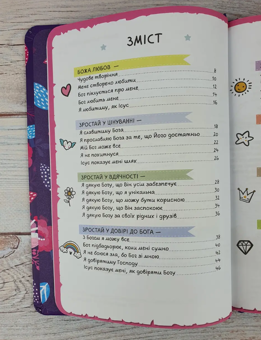 ЗМІСТ
БОЖА ЛЮБОВ —
Чудове творіння 8
Мене створено любити 10
Бог піклується про мене 12
Бог любить мене 14
Я любитиму, як Ісус 16
ЗРОСТАЙ У ЦІНУВАННІ —
Я славитиму Бога 18
Я прославляю Бога за те, що Його достатньо 20
Мій Бог може все 22
Я не поспішуся 24
Ісус показує мені шлях 26
ЗРОСТАЙ У ВДЯЧНОСТІ —
Я дякую Богу, що Він усім забезпечує 28
Я дякую Богу, що я унікальна 30
Я дякую Богу, що можу бути корисною 32
Я дякую Богу, що Він заспокоює 34
Я дякую Богу за своїх рідних і друзів 36
ЗРОСТАЙ У ДОВІРІ ДО БОГА —
З Богом я можу все 38
Бог підбадьорює, коли мені сумно 40
Я не боюся зла, бо Бог зі мною 42
Я довірятиму Господу 44
Ісус показує мені, як довіряти Богу 46